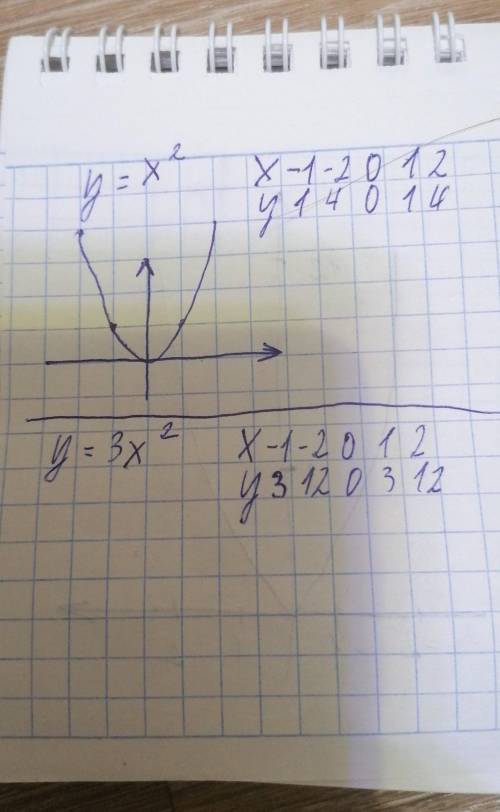 y = x²
x -1 -2 0 1 2
y 1 4 0 1 4
y = 3x²
x -1 -2 0 1 2
y 3 12 0 3 12